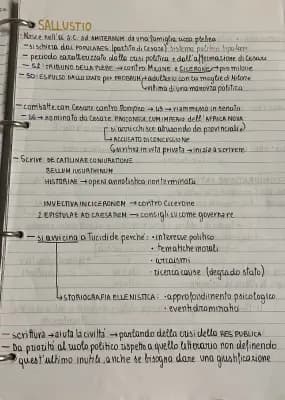 SALLUSTIO
Nasce nell'86 a.C. ad AMITERNUM da una famiglia ricca plebea
- si schiera coi POPULARES (partito di Cesare) sistema politico bipolare
- periodo caratterizzato dalla crisi politica e dall'affermazione di Cesare
- 52: TRIBUNO DELLA PLEBE → contro MILONE e CICERONE → pro milone
- 50: ESPULSO DAL SENATO per PROBRUM → adulterio con la moglie di Milone
→ vittima di una manovra politica
- combatte con Cesare contro Pompeo → 49 → riammesso in senato
- 46 → nominato da Cesare PROCONSUL CUM IMPERIO dell'AFRICA NOVA
si arricchisce abusando dei provinciali
→ ACCUSATO DI CONCUSSIONE
→ si ritira in vita privata → inizia a scrivere
- Scrive: DE CATILINAE CONIURATIONE
BELLUM IUGURTHINUM
HISTORIAE → opera annalistica non terminata
INVECTIVA IN CICERONEM → contro Cicerone
2 EPISTULAE AD CAESAREM → consigli su come governare
- si avvicina a Tucidide perché: · interesse politico
· tematiche morali
· arcaismi
· ricerca cause (degrado stato)
→ STORIOGRAFIA ELLENISTICA: · approfondimento psicologico
· eventi drammatici
- scrittura → aiuta la civiltà → parlando della crisi della RES PUBLICA
- Da priorità al ruolo politico rispetto a quello letterario non definendo
quest'ultimo inutile, anche se bisogna dare una giustificazione